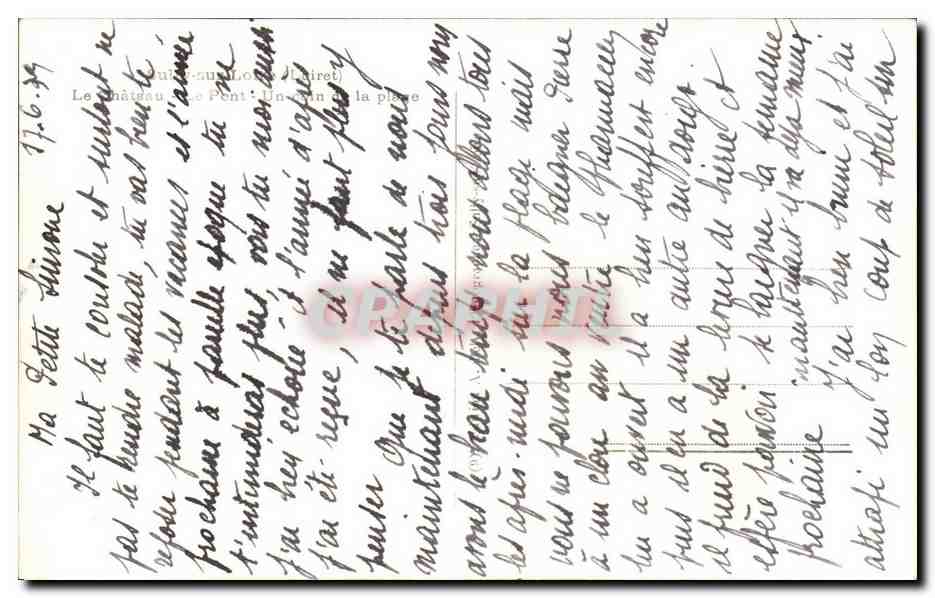 17.6.39
Ma Petite Simone
Il faut te consoler et surtout ne
pas te rendre malade, tu vas bien te
reposer pendant les vacances et l'année
prochaine à pareille époque tu ne
t'intimideras plus, vois tu moi aussi
j'ai bien échoué et l'année d'après
j'ai été reçue, il ne faut plus y
penser Que je te parle de nous
maintenant depuis trois jours nous
avons le beau temps nous allons tous
les après-midi sur la plage mais
nous ne pouvons nous baigner Pierre
à un clou au le pharmacien
lui a ouvert il a bien souffert encore
puis il en a un autre au
il prend de la de bière et
espère pouvoir se baigner la semaine
prochaine maintenant il va déjà mieux
J'ai bien bruni et j'ai
attrapé un bon coup de soleil sur
Sully-sur-Loire (Loiret)
Le Château - Le Pont - Un coin de la plage
CPAPHIL